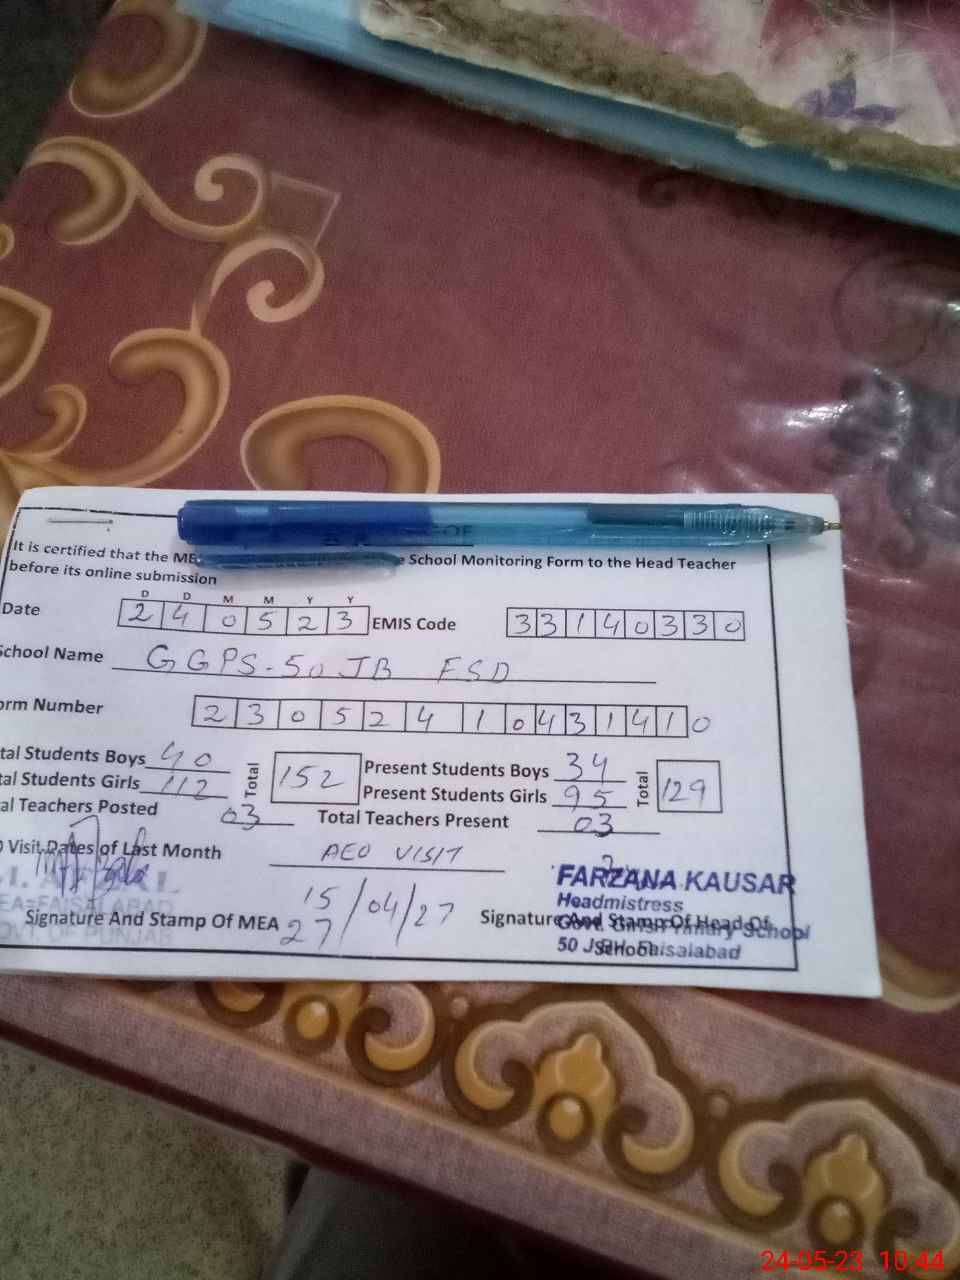 It is certified that the ME
e School Monitoring Form to the Head Teacher
before its online submission
D D M M Y Y
Date 2 4 0 5 2 3 EMIS Code 3 3 1 4 0 3 3 0
School Name GGPS-50 JB FSD
orm Number 2 3 0 5 2 4 1 0 4 3 1 4 1 0
tal Students Boys 40 Total 152 Present Students Boys 34 Total 129
tal Students Girls 112 Present Students Girls 95
al Teachers Posted 03 Total Teachers Present 03
Visit Dates of Last Month AEO VISIT
15/04/27
27
FARZANA KAUSAR
Headmistress
Signature And Stamp Of MEA Signature And Stamp Of Head Of
School
Govt. Girls Primary School
50 J.B Faisalabad
FAISALABAD
GOVT. OF PUNJAB
24-05-23 10:44